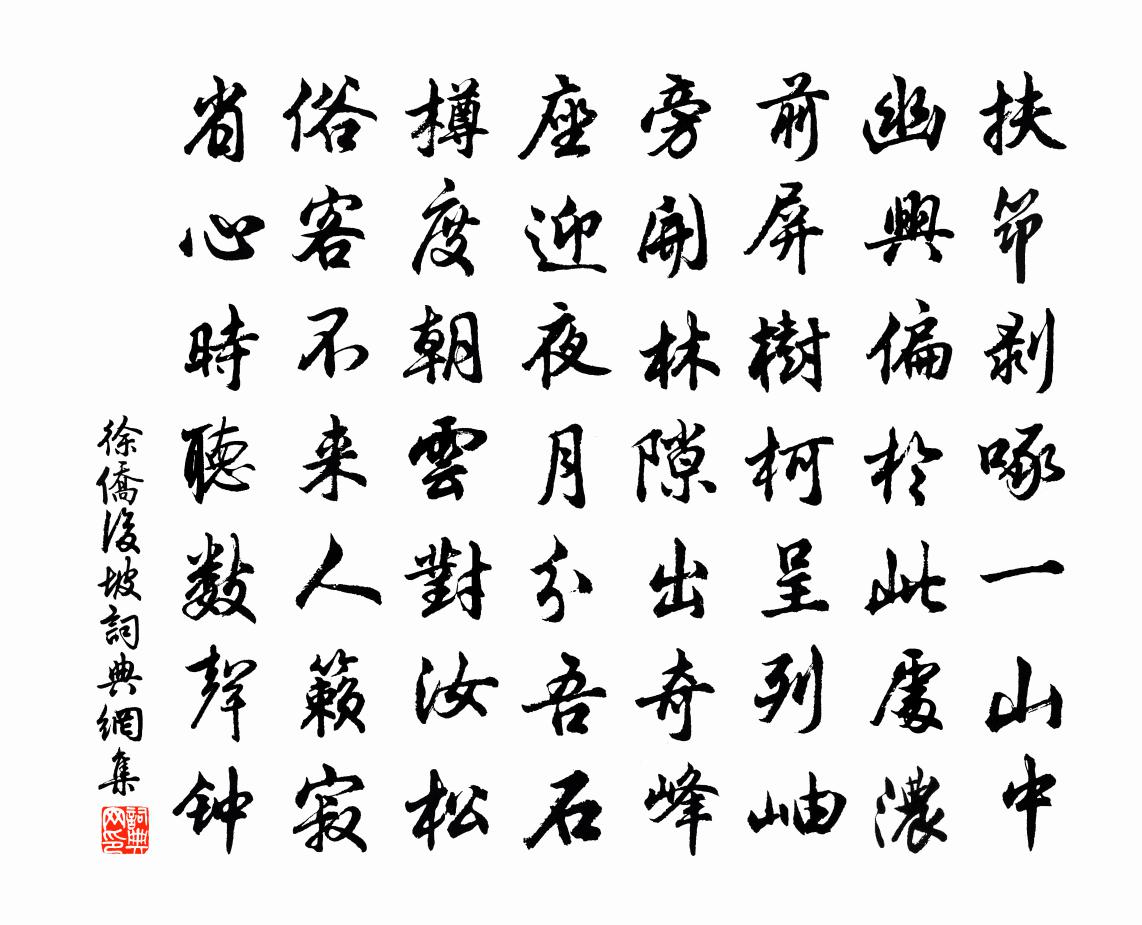 扶筇剥啄一山中
幽興偏於此處濃
前屏樹柯呈列岫
旁開林隙出奇峰
座迎夜月分吾石
樽度朝雲對汝松
俗客不来人籟寂
省心時聽数聲钟
徐僑後坡詞典網集
詞典网印